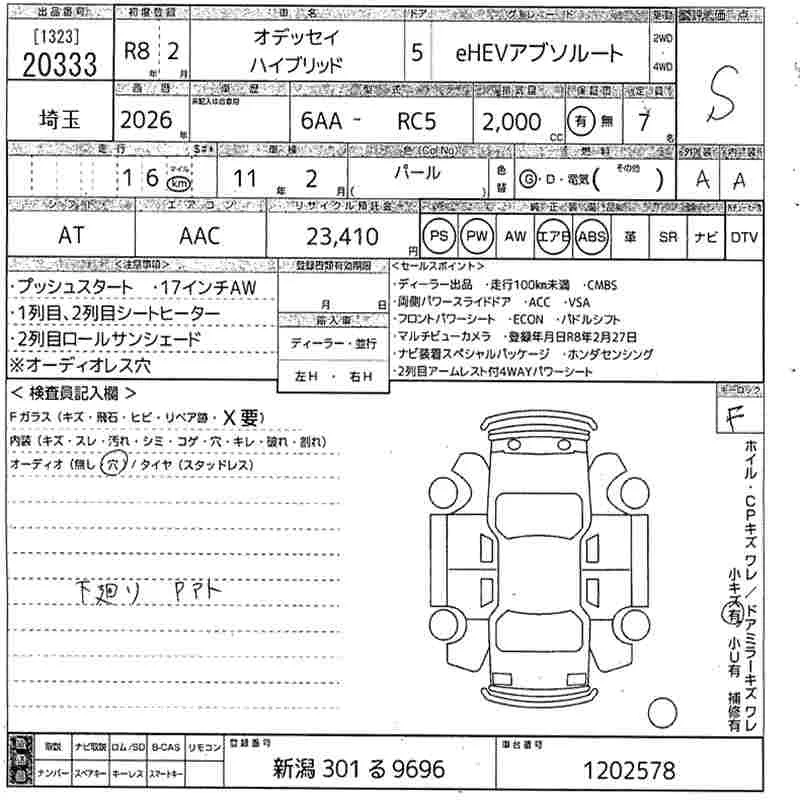 出品番号 初度登録 車名 ドア グレード 駆動 総評価点
[1323]
20333 R8年 2月 オデッセイ ハイブリッド 5 eHEVアブソルート 2WD 4WD S
車歴 型式 排気量 保証書 定員
埼玉 2026年 6AA - RC5 2,000cc 有 無 7名
走行 車検 色(Col No) 燃料 外装 内装
16 マイル km 11年 2月 パール ( ) 色替 G・D・電気( その他 ) A A
シフト エアコン リサイクル預託金 純正装備品
AT AAC 23,410円 PS PW AW エアB ABS 革 SR ナビ DTV
<注意事項>
・プッシュスタート ・17インチAW
・1列目、2列目シートヒーター
・2列目ロールサンシェード
※オーディオレス穴
登録書類有効期限
月 日
輸入車
ディーラー・並行
左H ・ 右H
<セールスポイント>
・ディーラー出品 ・走行100km未満 ・CMBS
・両側パワースライドドア ・ACC ・VSA
・フロントパワーシート ・ECON ・パドルシフト
・マルチビューカメラ ・登録年月日R8年2月27日
・ナビ装着スペシャルパッケージ ・ホンダセンシング
・2列目アームレスト付4WAYパワーシート
< 検査員記入欄 >
Fガラス(キズ・飛石・ヒビ・リペア跡・X要)
内装(キズ・スレ・汚れ・シミ・コゲ・穴・キレ・破れ・割れ)
オーディオ(無し・穴)/タイヤ(スタッドレス)
下廻り PPト
キーロック
F
ホイル・CPキズ ワレ/ドアミラーキズ ワレ
小キズ有 小U有 補修有
取説 ナビ取説 ロム/SD B-CAS リモコン
ナンバー スペアキー キーレス スマートキー
登録番号
新潟 301 る 9696
車台番号
1202578